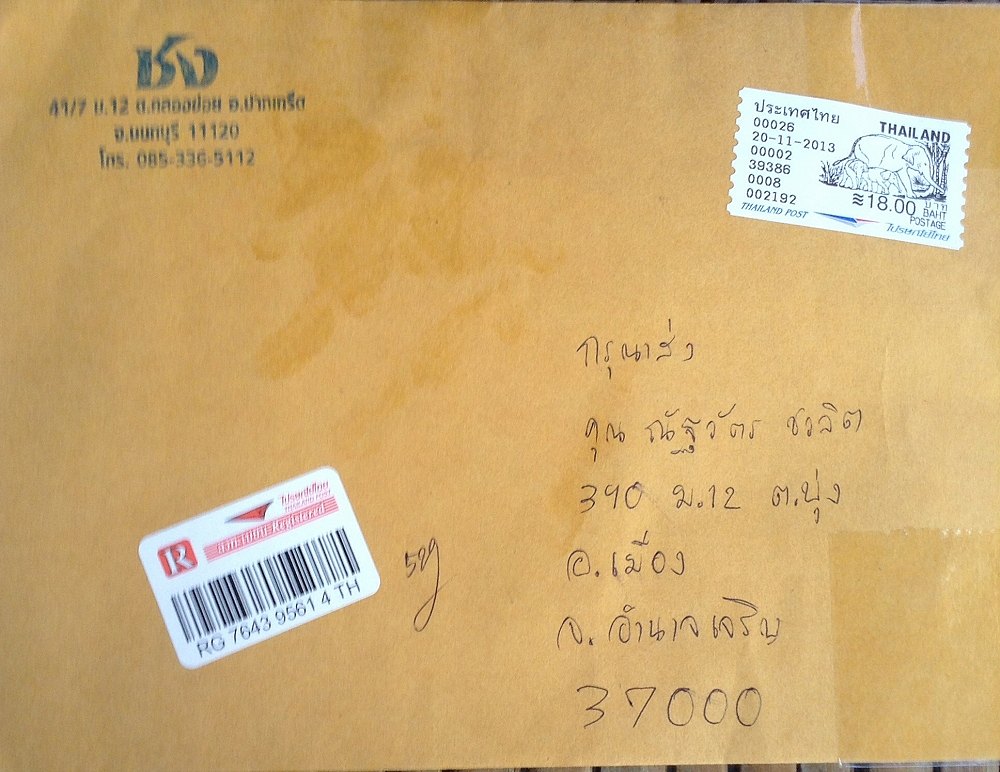 ชัง
41/7 ม.12 ต.คลองข่อย อ.ปากเกร็ด
อ.นนทบุรี 11120
โทร. 085-336-5112
ประเทศไทย
THAILAND
00026
20-11-2013
00002
39386
0008
002192
≋18.00 บาท
BAHT
POSTAGE
THAILAND POST
ไปรษณีย์ไทย
กรุณาส่ง
คุณ ณัฐวัตร ชวลิต
390 ม.12 ต.บุ่ง
อ.เมือง
จ.อำนาจเจริญ
37000
ไปรษณีย์ไทย
THAILAND POST
R
ลงทะเบียน Registered
RG 7643 9561 4 TH